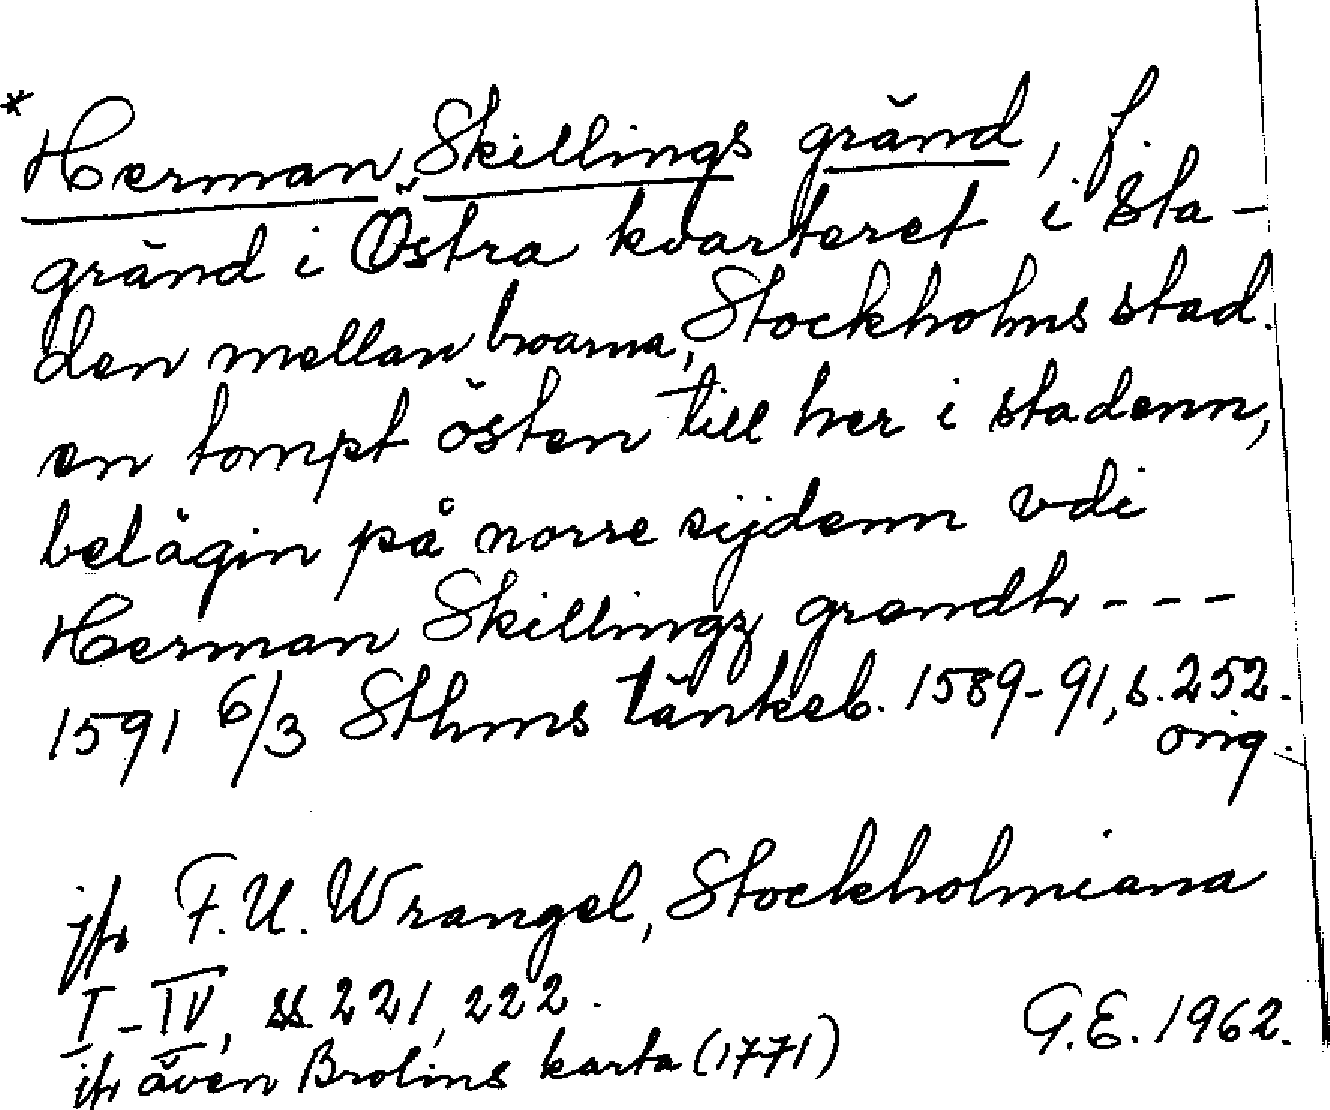 * Herman Skillings gränd, f.
gränd i Östra kvarteret i Sta-
den mellan broarna, Stockholms stad.
en tompt östen till her i stadenn,
belägin på norre sijdenn vdi
Herman Skillingz grendh ---
1591 6/3 Sthms tänkeb. 1589-91, s. 252.
orig.
jfr F. U. Wrangel, Stockholmiana
I-IV, ss 221, 222.
jfr även Brolins karta (1771)
G.E. 1962.